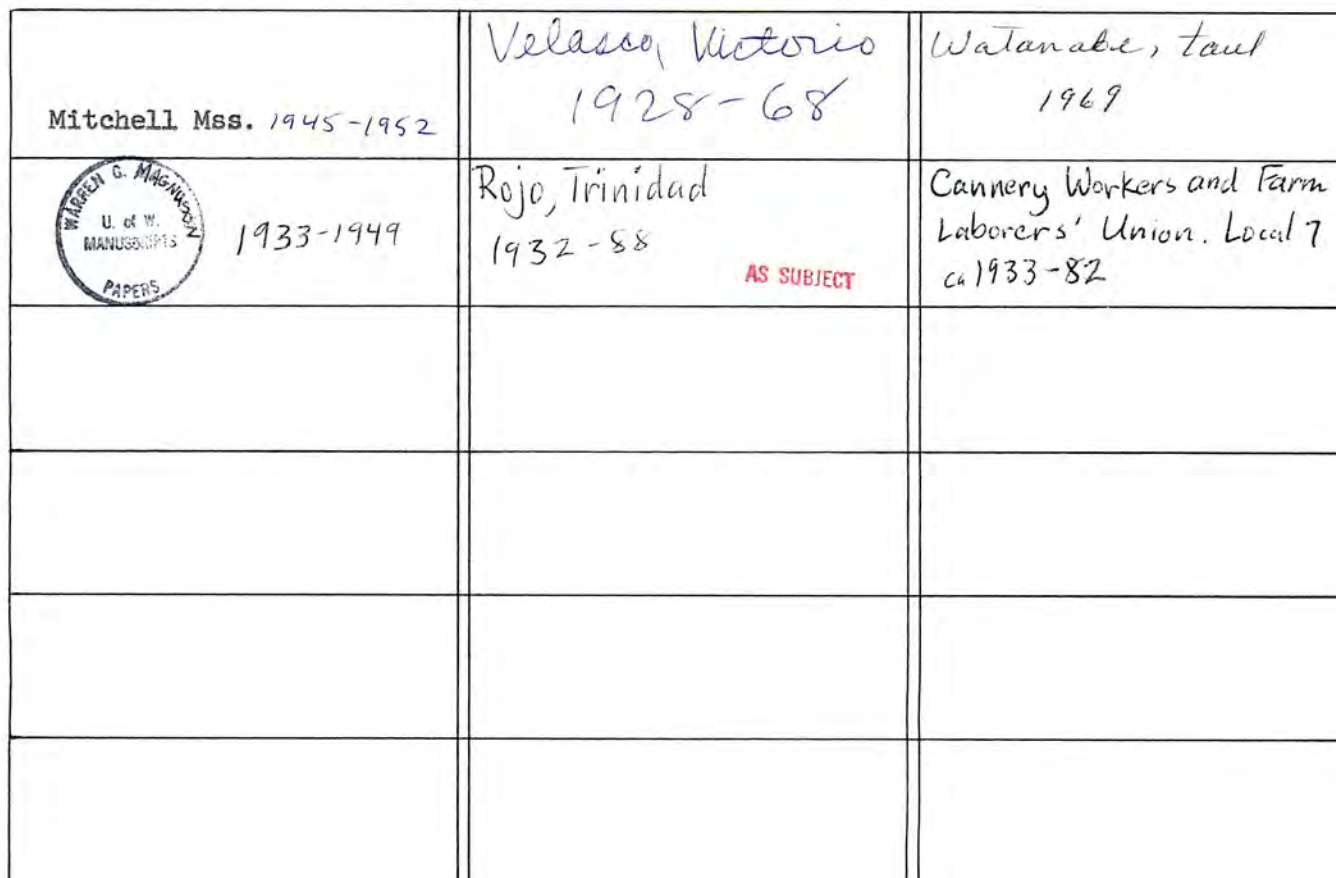 Mitchell Mss. 1945-1952
Velasco, Victorio
1928-68
Watanabe, Taul
1969
WARREN G. MAGNUSON
U. of W.
MANUSCRIPTS
PAPERS
1933-1949
Rojo, Trinidad
1932-88
AS SUBJECT
Cannery Workers and Farm
Laborers' Union. Local 7
ca 1933-82